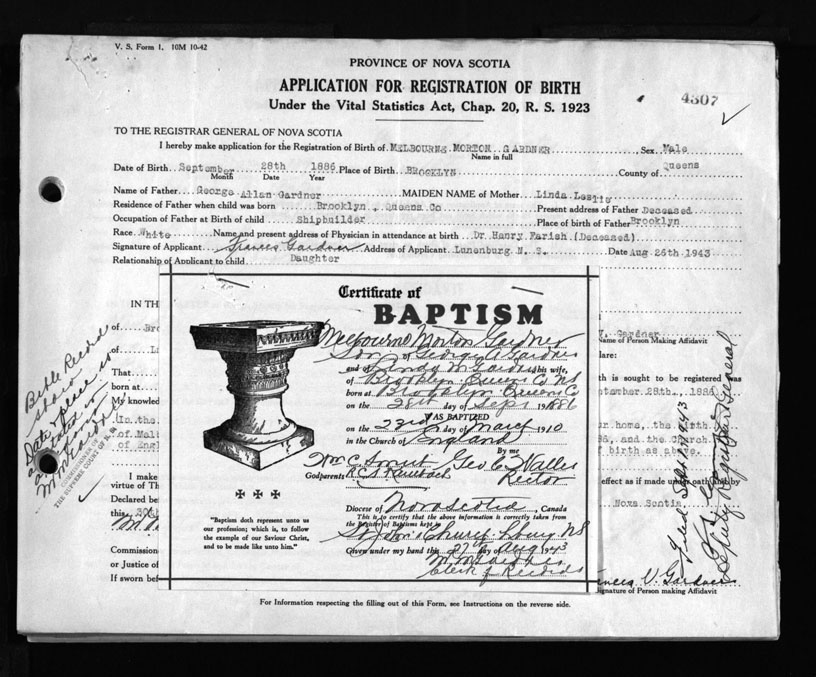 V. S. Form 1. 10M 10-42
PROVINCE OF NOVA SCOTIA
APPLICATION FOR REGISTRATION OF BIRTH
Under the Vital Statistics Act, Chap. 20, R. S. 1923
4307
TO THE REGISTRAR GENERAL OF NOVA SCOTIA
I hereby make application for the Registration of Birth of MELBOURNE MORTON GARDNER Sex Male
Name in full
Date of Birth September 28th 1886 Place of Birth BROOKLYN County of Queens
Month Date Year
Name of Father George Allan Gardner MAIDEN NAME of Mother Linda Leslie
Residence of Father when child was born Brooklyn, Queens Co Present address of Father Deceased
Occupation of Father at Birth of child Shipbuilder Place of birth of Father Brooklyn
Race White Name and present address of Physician in attendance at birth Dr Henry Farish (Deceased)
Signature of Applicant Frances Gardner Address of Applicant Lunenburg N. S. Date Aug 26th 1943
Relationship of Applicant to child Daughter
IN THE
of Bro
of L
That
born at
My knowled
In the
of Melb
of Engl
I make
virtue of Th
Declared bef
this
Commission
or Justice of
If sworn bef
Bible Record
shows
Date & place as
as stated in
COMMISSIONER OF
THE SUPREME COURT OF N. S.
Certificate of
BAPTISM
Melbourne Morton Gardner
Son of George A Gardner
and of Linda Gardner his wife,
of Brooklyn Queens Co NS
born at Brooklyn Queens Co
on the 28th day of Sept 1886
WAS BAPTIZED
on the 23rd day of March 1910
in the Church of England
By me
Wm C. Smith Geo E Walles
Godparents Rector
Diocese of Nova Scotia, Canada
This is to certify that the above information is correctly taken from
the Register of Baptisms kept
St John's Church Lburg NS
Given under my hand this 27 day of Aug 1943
Clerk of Records
"Baptism doth represent unto us
our profession; which is, to follow
the example of our Saviour Christ,
and to be made like unto him."
V. Gardner
Name of Person Making Affidavit
lare:
th is sought to be registered was
ptember 28th., 1886
ur home, the birth
86, and the Church
f birth as above.
effect as if made under oath and by
Nova Scotia
Frances V. Gardner
Signature of Person making Affidavit
Filed Sept 1943
Deputy Registrar General
For Information respecting the filling out of this Form, see Instructions on the reverse side.